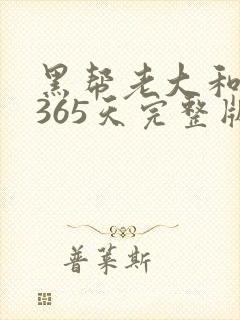 黑帮老大和
365天完整版
普莱斯